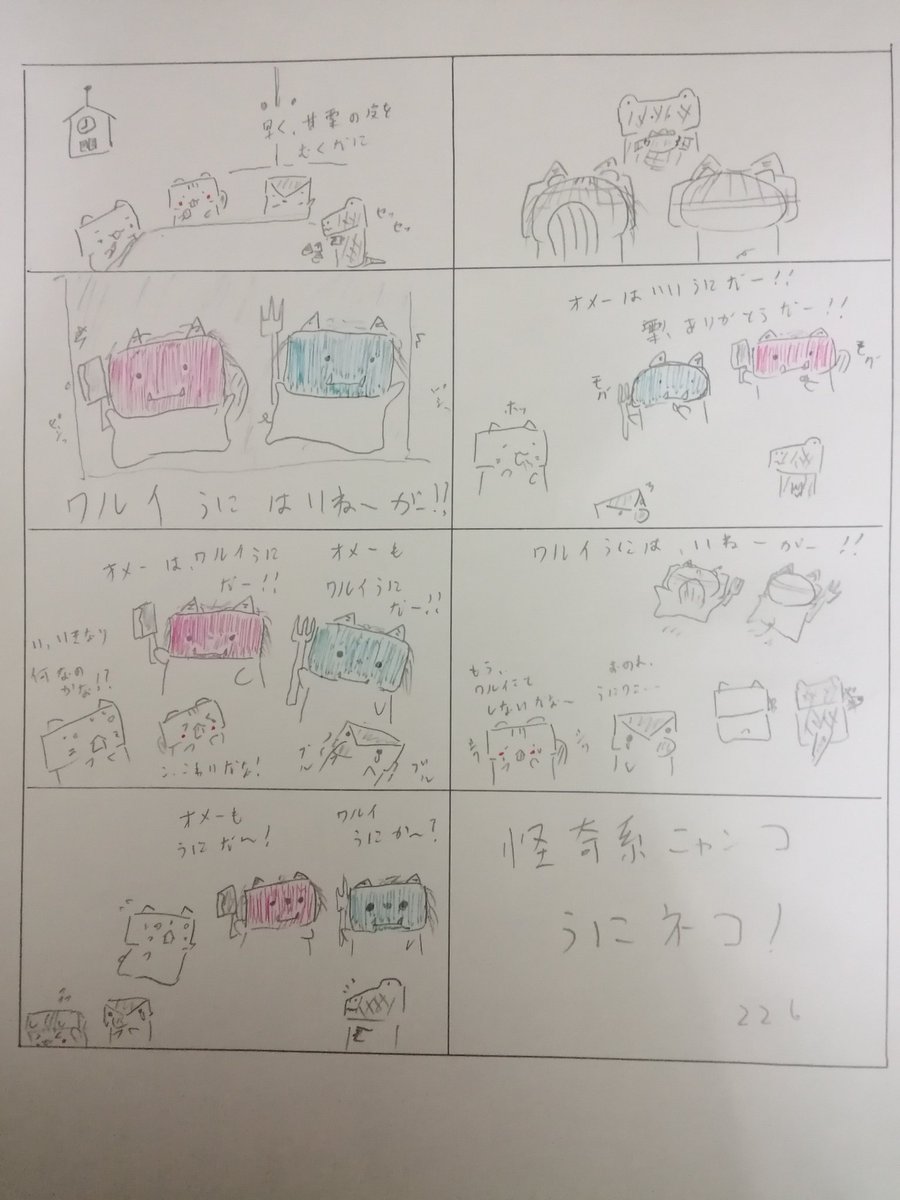 早く、甘栗の皮を
むくがに
セッ
セッ
ワルイ うに はいねーがー!!
オメーは、ワルイうに
だー!!
オメーも
ワルイうに
だー!!
い、いきなり
何なの
かな!?
ブル
ブル
オメーも
うにだ〜!
ワルイ
うにか〜?
オメーはいいうにだー!!
栗、ありがとうだー!!
モグ
モグ
ホッ
ワルイうには、いねーがー!!
もう、
ワルイこと
しないかな〜
怪奇系ニャンコ
うにネコ!
226